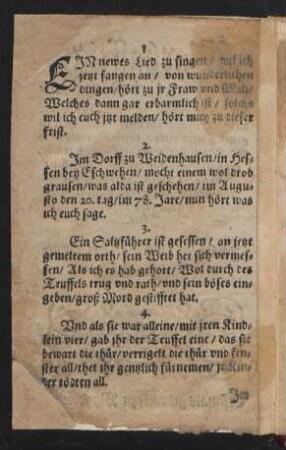 1
EIN newes Lied zu singen / wil ich
jetzt fangen an / von wunderlichen
dingen / hört zu jr Fraw vnd Man /
Welches dann gar erbarmlich ist / solchs
wil ich euch jtzt melden / hört mich zu dieser
frist.
2.
Im Dorff zu Weidenhausen / in Hes-
sen bey Eschwehen / möcht einem wol drob
grausen / was alda ist geschehen / im Augu-
sto den 20. tag / im 78. Jare / nun hört was
ich euch sage.
3.
Ein Saltzführer ist gesessen / an jetzt
gemeltem orth / sein Weib het sich vermes-
sen / Als ich es hab gehört / Wol durch des
Teuffels trug vnd rath / vnd sein böses ein-
geben / groß Mord gestifftet hat.
4.
Vnd als sie war alleine / mit jren Kind-
lein vier / gab jhr der Teuffel eine / das sie
bewart die thür / verrigelt die thür vnd fen-
ster all / thet jhr gentzlich fürnemen /
der tödten all.
Im